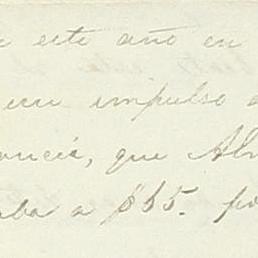 este año en
un impulso
ancia, que
aba a $65. po